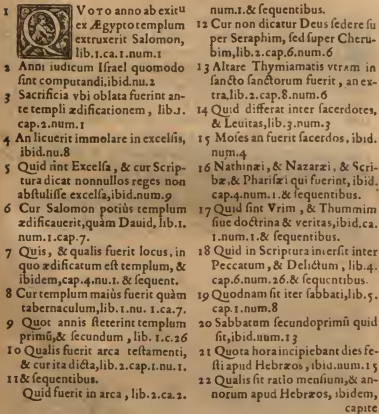 1 QVoto anno ab exitu
ex Ægypto templum
extruxerit Salomon,
lib.1.ca.1.num.1
2 Anni iudicum Israel quomodo
sint computandi.ibid.nu.2
3 Sacrificia vbi oblata fuerint an-
te templi ædificationem, lib.1.
cap.2.num.1
4 An licuerit immolare in excelsis,
ibid.nu.8
5 Quid sint Excelsa, & cur Scrip-
tura dicat nonnullos reges non
abstulisse excelsa, ibid.num.9
6 Cur Salomon potiùs templum
ædificauerit, quàm Dauid, lib.1.
num.1.cap.7.
7 Quis, & qualis fuerit locus, in
quo ædificatum est templum, &
ibidem, cap.4.nu.1. & sequent.
8 Cur templum maiùs fuerit quàm
tabernaculum, lib.1.nu.1.ca.7.
9 Quot annis steterint templum
primũ, & secundum, lib.1.c.26
10 Qualis fuerit arca testamenti,
& cur ita dicta, lib.2.cap.1.nu.1.
11 & sequentibus.
Quid fuerit in arca, lib.2.ca.2.
num.1.& sequentibus.
12 Cur non dicatur Deus sedere su
per Seraphim, sed super Cheru-
bim, lib.2.cap.6.num.6
13 Altare Thymiamatis vtrum in
sancto sanctorum fuerit, an ex-
tra, lib.2.cap.8.num.6
14 Quid differat inter sacerdotes,
& Leuitas, lib.3.num.3
15 Moses an fuerit sacerdos, ibid.
num.4
16 Nathinæi, & Nazaræi, & Scri-
bæ, & Pharisæi qui fuerint, ibid.
cap.4.num.1.& sequentibus.
17 Quid sint Vrim, & Thummim
siue doctrina & veritas, ibid.ca.
1.num.1.& sequentibus.
18 Quid in Scriptura intersit inter
Peccatum, & Delictum, lib.4.
cap.6.num.26.& sequentibus
19 Quodnam sit iter sabbati, lib.5.
cap.1.num.8
20 Sabbatum secundoprimũ quid
sit, ibid.num.13
21 Quota hora incipiebant dies fe-
sti apud Hebræos, ibid.num.15
22 Qualis sit ratio mensium, & an-
norum apud Hebræos, ibidem,
capite